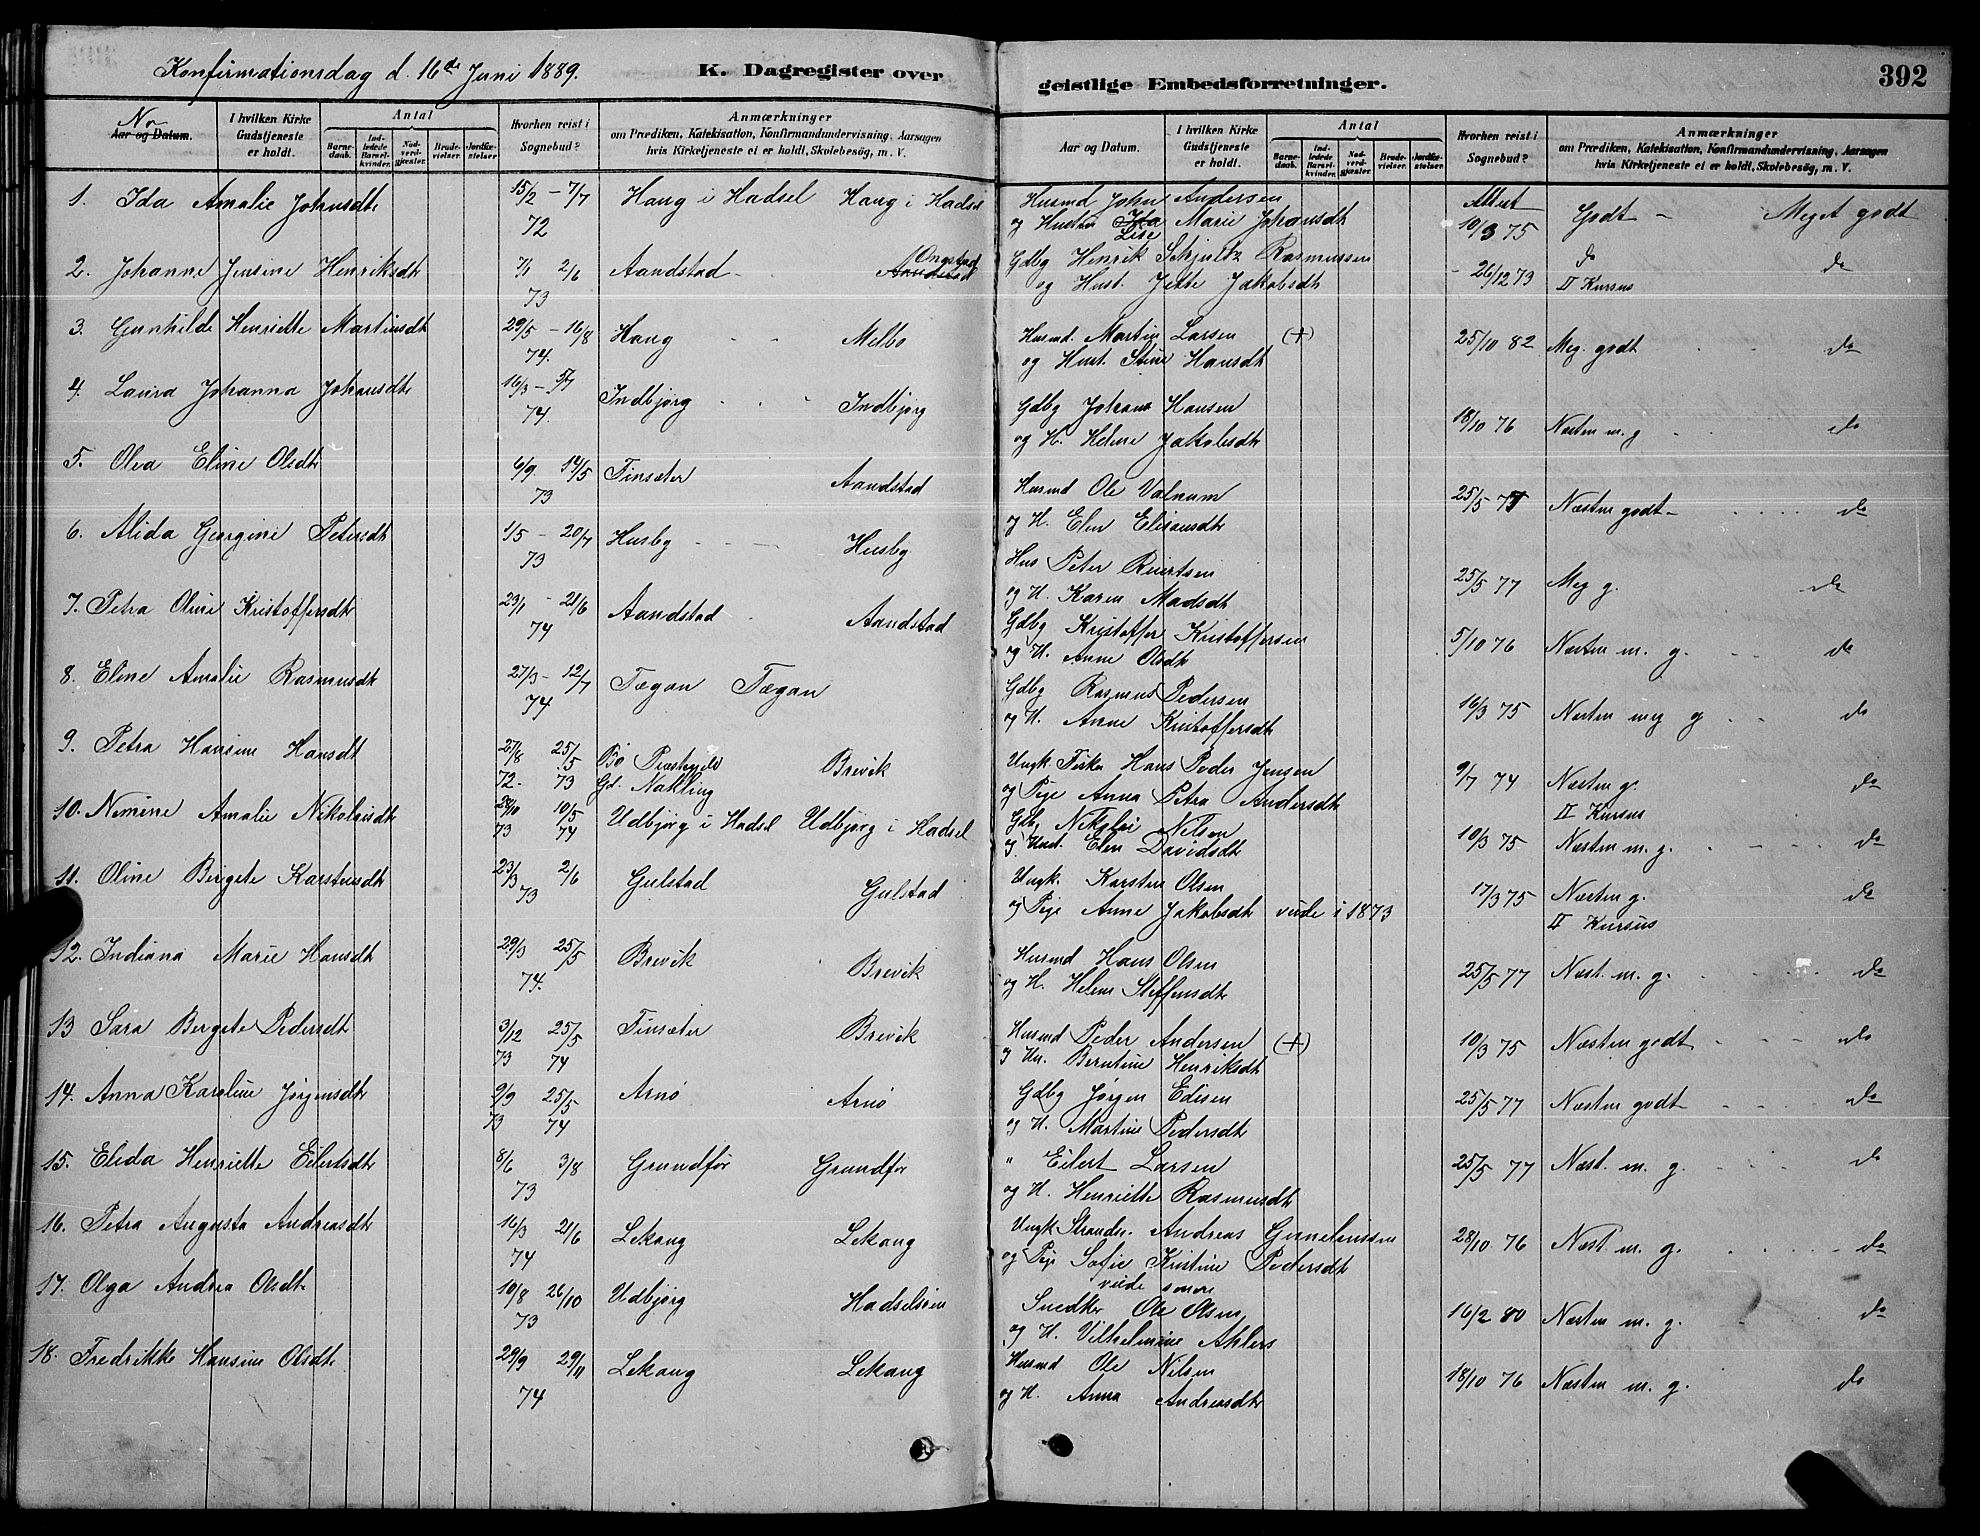 Konfirmationsdag d. 16de Juni 1889.
K. Dagregister over
geistlige Embedsforretninger.
392
No
Aar og Datum.
I hvilken Kirke Gudstjeneste er holdt.
Antal
Barnedaab. Indledede Barselkvinder. Nadverdgjester. Brudevielser. Jordfæstelser
Hvorhen reist i Sognebud?
Anmærkninger
om Prædiken, Katekisation, Konfirmandundervisning, Aarsagen
hvis Kirketjeneste ei er holdt, Skolebesøg, m. V.
Aar og Datum.
I hvilken Kirke Gudstjeneste er holdt.
Antal
Barnedaab. Indledede Barselkvinder. Nadverdgjester. Brudevielser. Jordfæstelser.
Hvorhen reist i Sognebud?
Anmærkninger
om Prædiken, Katekisation, Konfirmandundervisning, Aarsagen
hvis Kirketjeneste ei er holdt, Skolebesøg, m. V.
1. Ida Amalie Johnsdtr 15/2 - 7/7 72 Haug i Hadsel Haug i Hadsel
Husmd John Andersen
og Hustru Ida Lise Marie Johansdtr
Attest 10/3 75 Godt - Meget godt
2. Johanne Jensine Henriksdtr 7/1 2/6 73 Aandstad Aandstad Ongstad
Gdbg Henrik Schjultz Rasmussen
og Hust. Jette Jakobsdtr
26/12 73 do II Kursus do
3. Gunhilde Henriette Martinsdtr 29/5 - 16/8 74. Haug Melbo
Husmd. Martin Larsen (+)
og Hust. Stine Hansdtr
25/10 82 Meg. godt do
4. Laura Johanna Johansdtr 16/3 - 5/7 74. Indbjørg Indbjørg
Gdbg Johans Hansen
og H. Helene Jakobsdtr
18/10 76 Næsten m. g do
5. Olea Eline Olsdtr 6/9. 14/5 73 Finsæter Aandstad
Husmd Ole Valnum
og H. Elen Eliasdtr
25/5 77 Næsten godt - do
6. Alida Georgine Petersdtr 1/5 - 20/7 73 Husby Husby
Hus Peter Reiertsen
og H. Karen Madsdtr
25/5 77 Meg g. do
7. Petra Oline Kristoffersdtr 23/1 - 21/6 74 Aandstad Aandstad
Gdbg Kristoffer Kristoffersen
og H. Anne Olsdtr
5/10 76 Næsten m. g. do
8. Eline Amalie Rasmusdtr 27/3 - 12/7 74 Tægan Tægan
Gdbg Rasmus Pedersen
og H. Anne Kristoffersdtr
16/3 75 Næsten meg g do
9. Petra Hansine Hansdtr 27/8 72 - 25/5 73 Bø Præstegjeld Gd. Nakling Brevik
Ungk. Fisker Hans Peder Jensen
og Pige Anna Petra Andersdtr
9/7 74 Næsten g. II Kursus do
10. Nimine Amalie Nikolaisdtr 28/10 73 10/5 74 Udbjørg i Hadsel Udbjørg i Hadsel
Gdbg Nikolai Nilsen
og Hust. Elen Davidsdtr
10/3 75 Næsten m. g. do
11. Oline Bergete Karstensdtr 23/3 2/6 73 Gulstad Gulstad
Ungk. Karsten Olsen
og Pige Anne Jakobsdtr viede i 1873
17/3 75 Næsten g. II Kursus do
12. Indiana Marie Hansdtr 29/3 25/5 74. Brevik Brevik
Husmd Hans Olsen
og H. Helene Steffensdtr
25/5 77 Næst. m. g. do
13 Sara Bergete Pedersdtr 3/12 73 25/5 74 Finsæter Brevik
Husmd Peder Andersen (+)
og Hu. Berntine Henriksdtr
10/3 75 Næsten godt do
14. Anna Karoline Jørgensdtr 9/9 73 25/5 74 Arnø Arnø
Gdbg Jørgen Edisen
og H. Martine Pedersdtr
25/5 77 Næsten godt do
15. Elida Henriette Eilertsdtr 8/6 3/8 73 Grundfør Grundfør
" Eilert Larsen
og H. Henriette Rasmusdtr
25/5 77 Næst. m. g. do
16. Petra Augusta Andreasdtr 16/3 21/6 74 Lekang Lekang
Ungk. Strands. Andreas
og Pige Sofie Kristine Pedersdtr
viede senere
28/10 76 Næst. m. g. do
17. Olga Andrea Olsdtr. 10/8 26/10 73 Udbjørg
Snedker Ole Olsen
og H. Vilhelmine Ahlers
16/2 80 Næsten m. g. do
18. Fredrikke Hansine Olsdtr 29/9 29/11 74 Lekang Lekang
Husmd Ole Nilsen
og H. Anna Andreasdtr
18/10 76 Næsten m. g. do